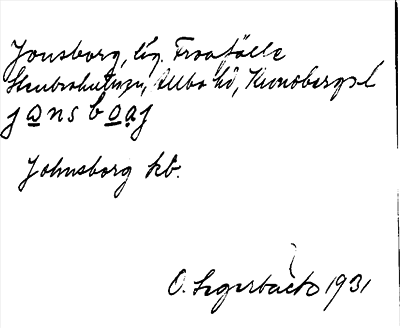 Jonsborg, lg. Froafälle
Stenbrohult sn, Allbo hd, Kronobergs l
jɷnsbo̲a̲j
Johnsborg kb.
O. Segerbäck 1931